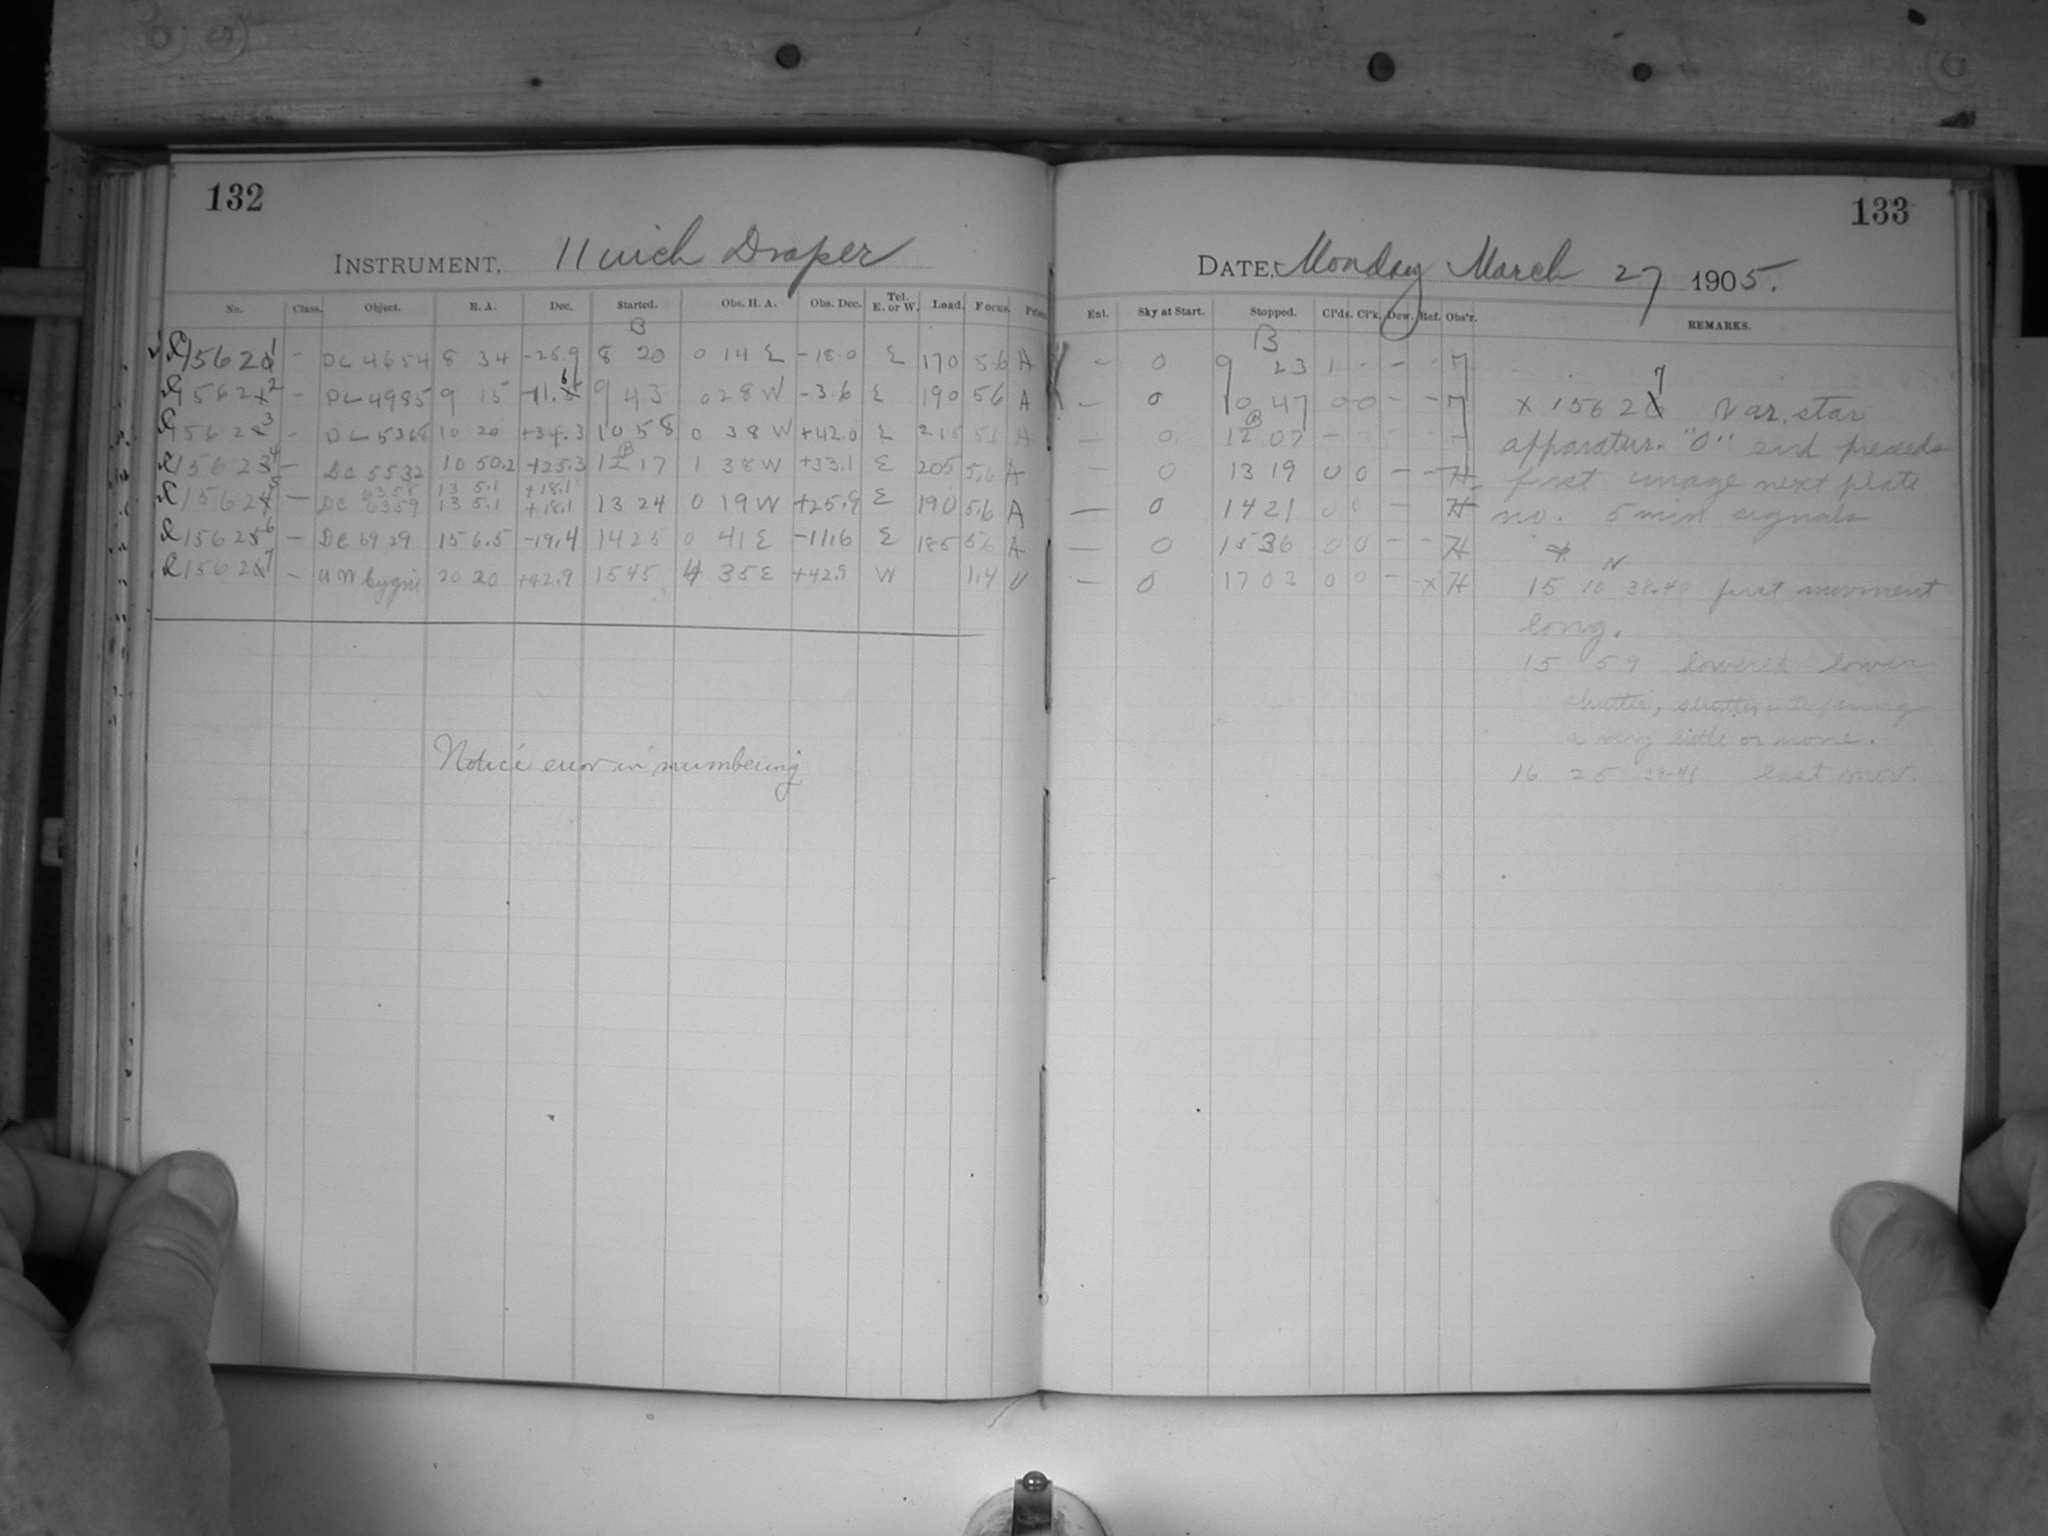 132
INSTRUMENT, 11 inch Draper
No. Class. Object. R. A. Dec. Started. Obs. H. A. Obs. Dec. Tel. E. or W. Lead. Focus. Prism
B
15621 - DC 4654 8 34 -25.9 8 20 0 14 E -18.0 E 170 5.6 A
15622 - DC 4985 9 15 -11.6 9 43 0 28 W -3.6 E 190 56 A
15623 - DC 5368 10 20 +34.3 10 58 0 38 W +42.0 E 215 A
15624 - DC 5532 10 50.2 +25.3 12 17 1 38 W +33.1 E 205 5.6 A
6358 13 5.1 +18.1
1562 - DC 6359 13 5.1 +18.1 13 24 0 19 W +25.9 E 190 5.6 A
15626 - DC 6929 15 6.5 -19.4 14 25 0 41 E -11.6 E 185 56 A
15627 - U W Cygni 20 20 +42.9 15 45 4 35 E +42.9 W 1.4 U
Notice error in numbering
133
DATE, Monday March 27 1905.
Enl. Sky at Start. Stopped. Cl'ds. Cl'k. Dew. Ref. Obs'r. REMARKS.
B
- 0 9 23 1 - - -
- 0 10 47 0 0 - -
- 0 12 07 - - - -
- 0 13 19 0 0 - - H
- 0 14 21 0 0 - H
- 0 15 36 0 0 - - H
- 0 17 03 0 0 - x H
x 15627 Var. star
apparatus. "0" end precede
first image next plate
no. 5 min signals
15 10 38.40 first movment
long.
15 59 lowered lower
shutter,
a very little or none.
16 25 39-41 last mov.